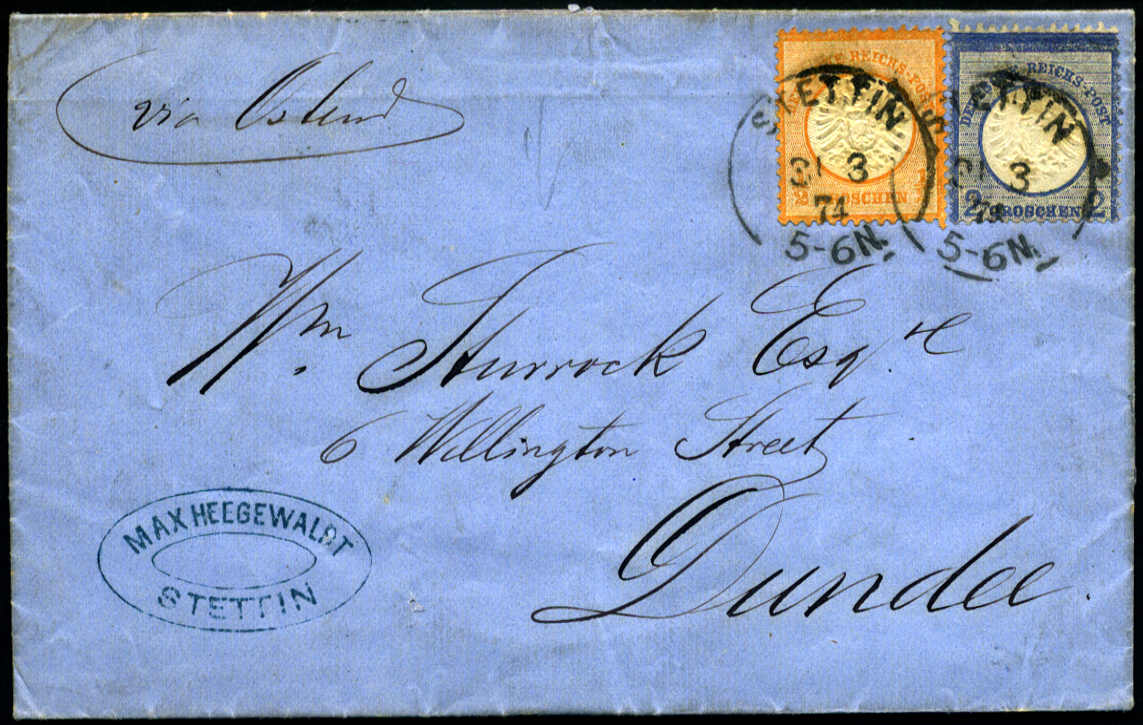 via Ostend
REICHS-POST
½ GROSCHEN
STETTIN
3
74
5-6N.
DEUTSCHE REICHS-POST
2 GROSCHEN 2
STETTIN
3
5-6N.
Wm. Sturrock Esqre
6 Wellington Street
Dundee.
MAX HEEGEWALDT
STETTIN